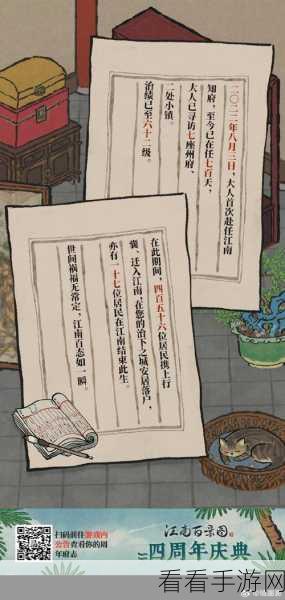 二〇二二年八月三日，大人首次赴任江南
知府，至今已在任七百天，
大人已寻访七座州府、
二处小镇。
治绩已至六十二级。
在此期间，四百五十六位居民携上行
囊、迁入江南，在您的治下之城安居落户，
亦有一十七位居民在江南结束此生。
世间祸福无常定，江南百态如一瞬。
扫码前往游戏内
公告查看你的周
年府志
江南百景图
四周年庆典
看看手游网